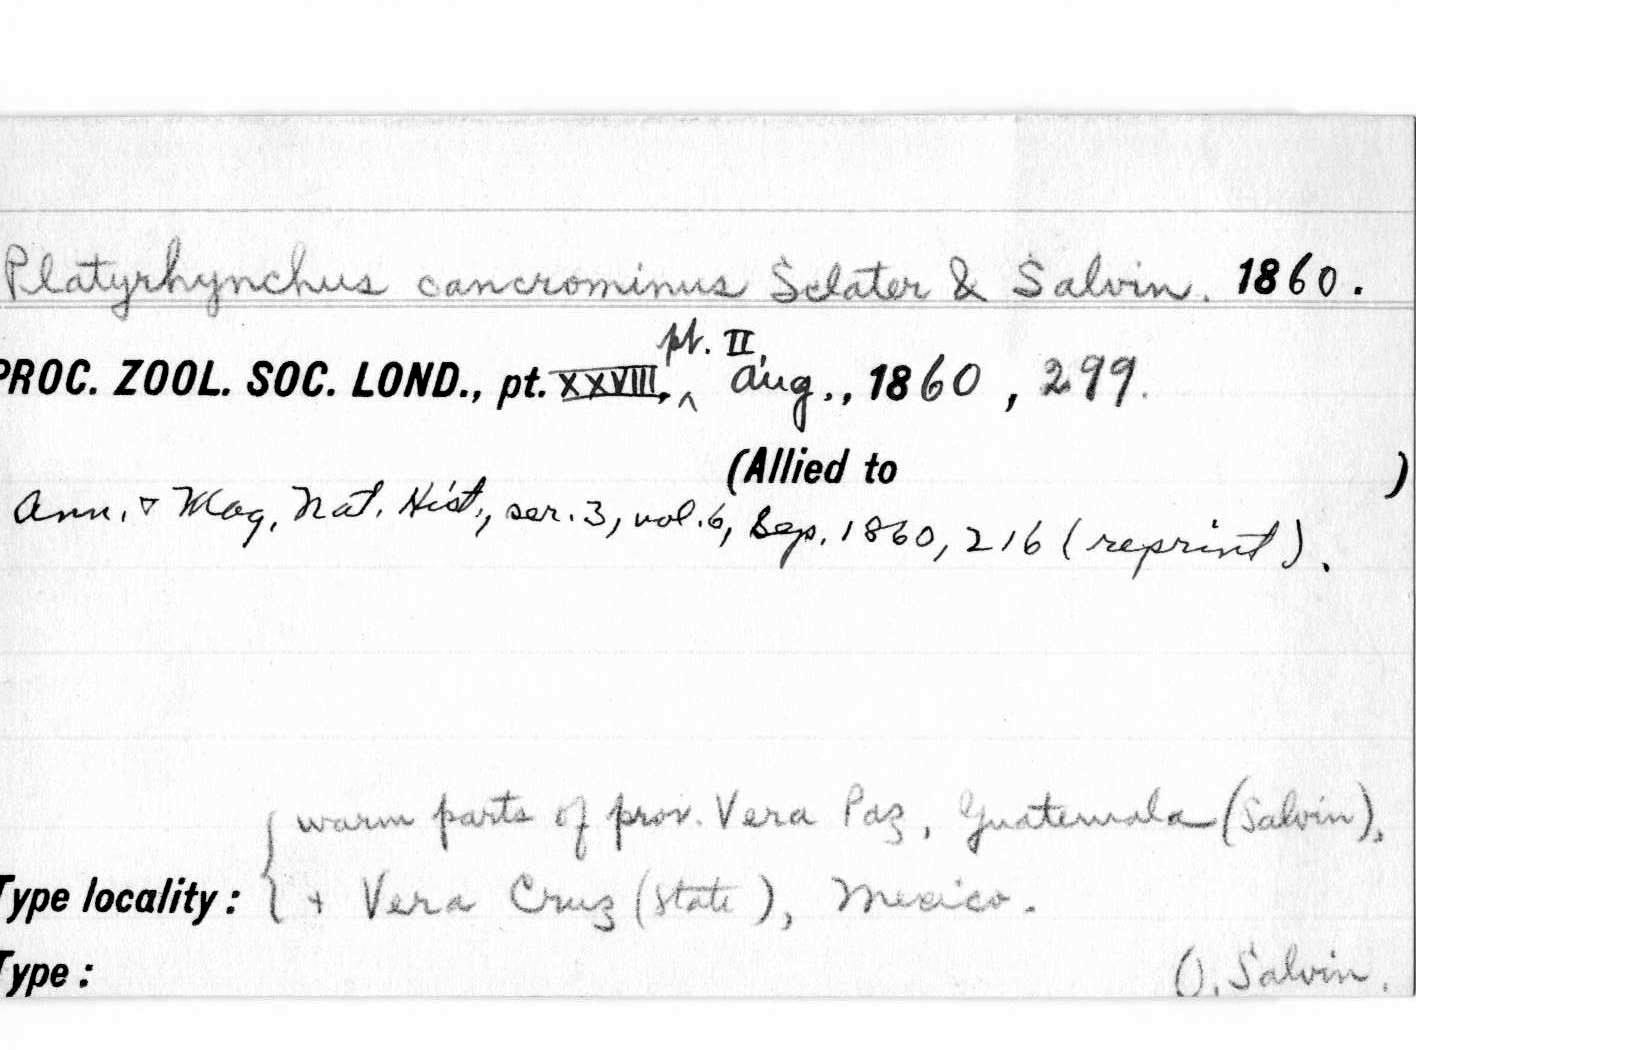 Platyrhynchus cancrominus Sclater & Salvin. 1860.
pt. II,
PROC. ZOOL. SOC. LOND., pt. XXVIII, ^ Aug., 1860, 299.
(Allied to )
Ann. & Mag. Nat. Hist., ser. 3, vol. 6, Sep. 1860, 216 (reprint).
{ warm parts of prov. Vera Paz, Guatemala (Salvin),
Type locality: { + Vera Cruz (State), Mexico.
Type: O. Salvin.